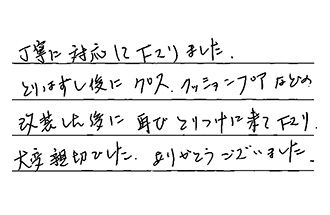 丁寧に対応して下さりました.
とりはずし後に クロス、クッションフロアなどの
改装した後に 再びとりつけに来て下さり、
大変親切でした. ありがとうございました.